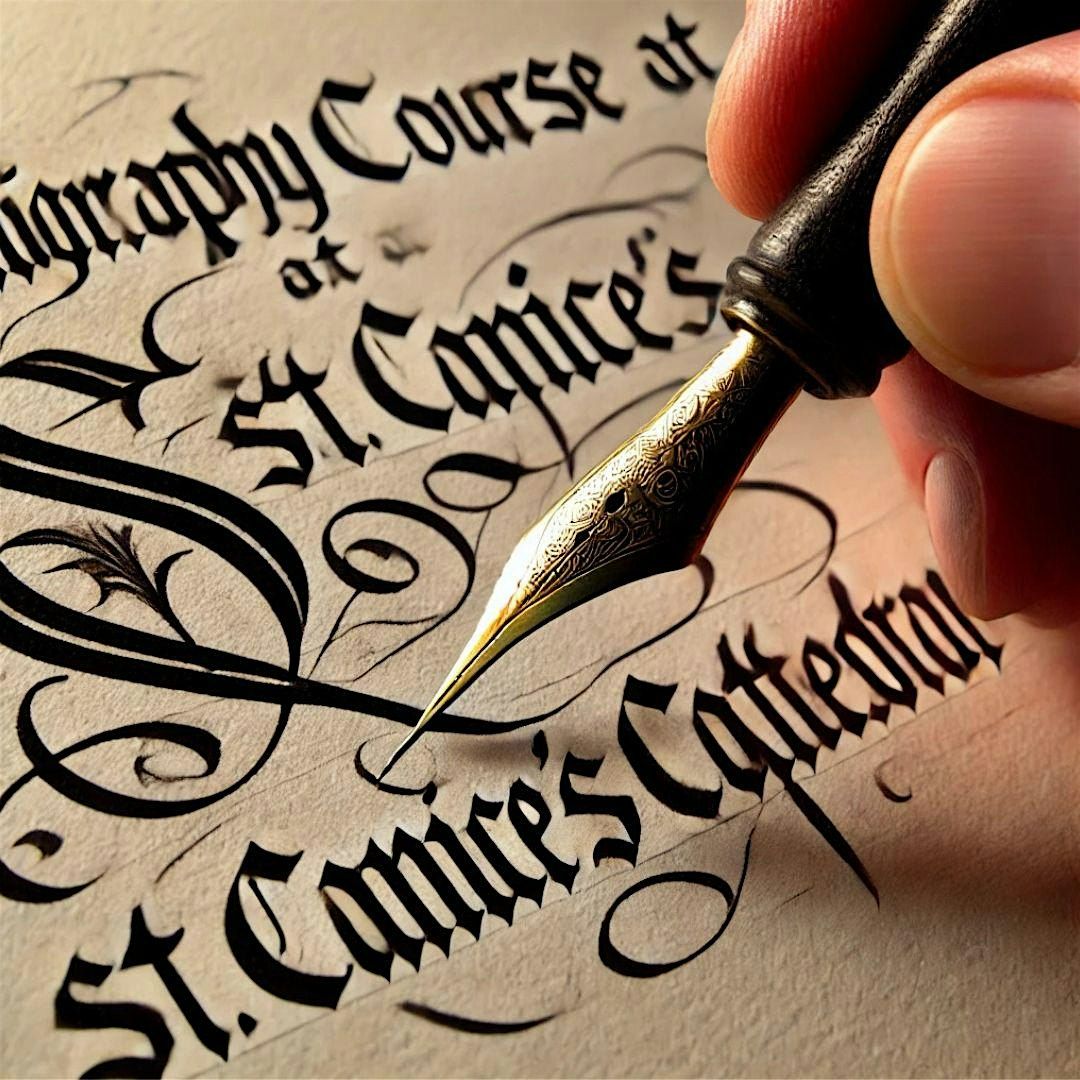 ligraphy Course at
at
St. Canice's
St. Canice's